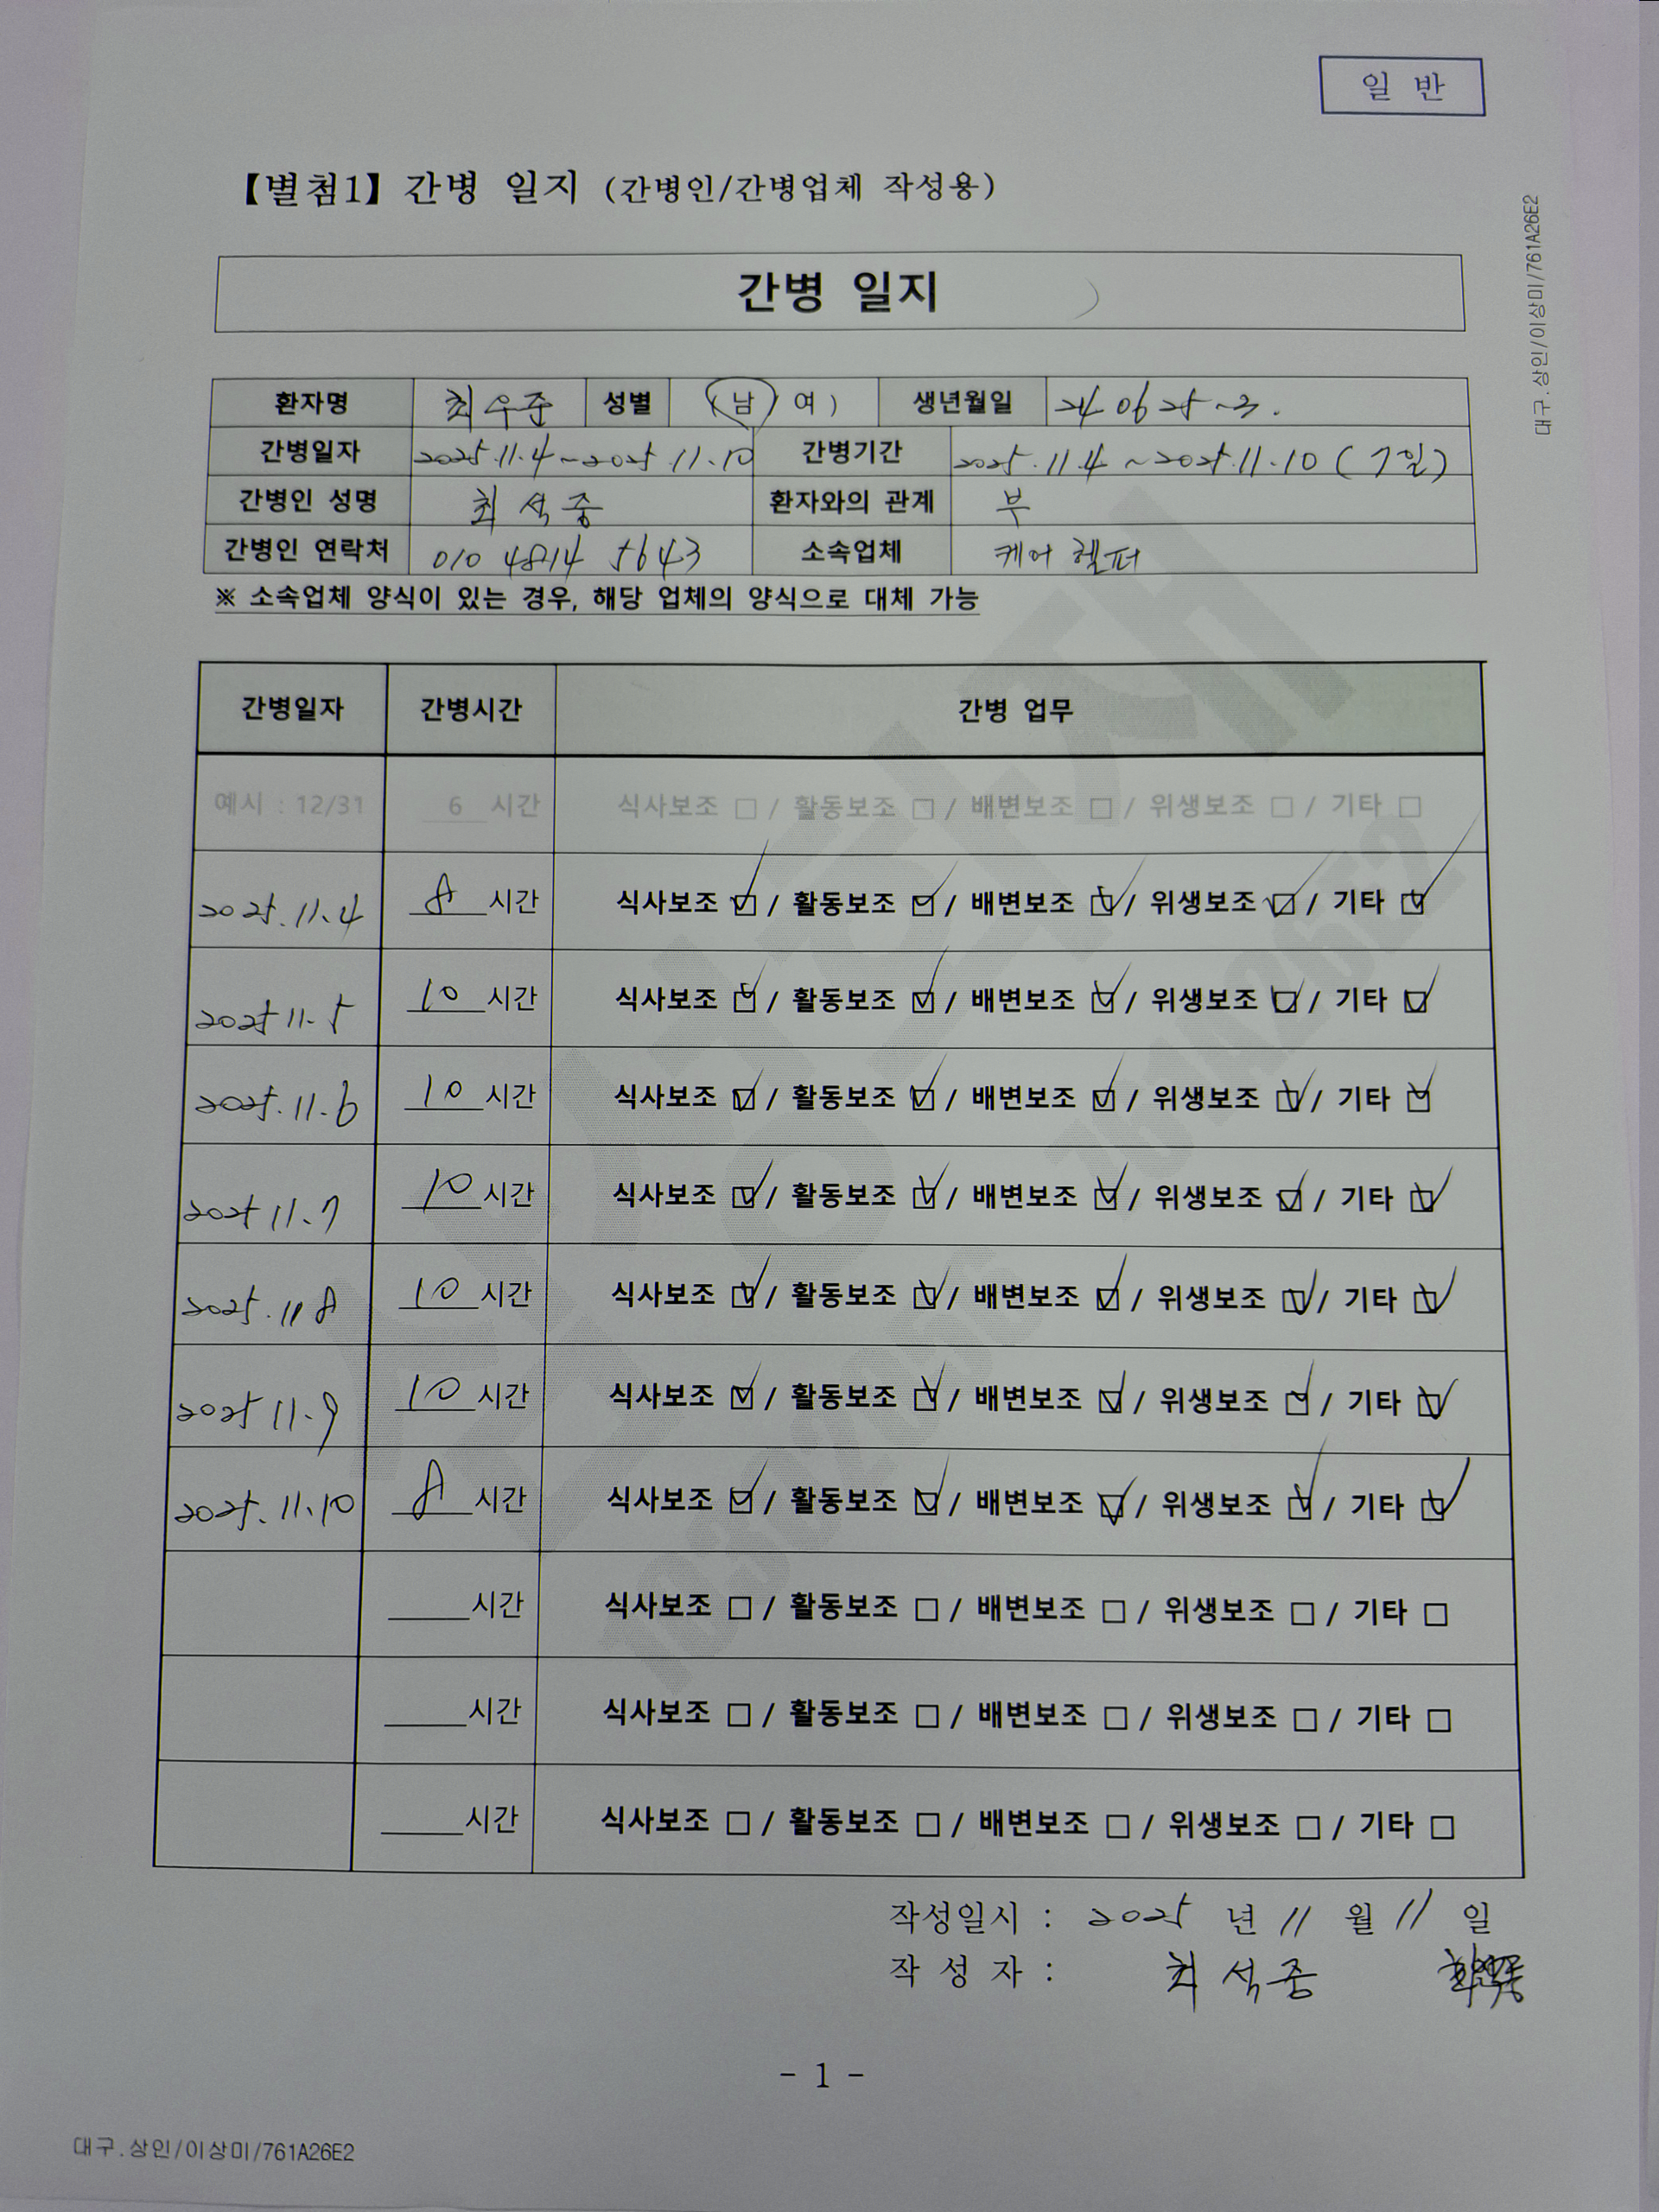 일 반
【별첨1】 간병 일지 (간병인/간병업체 작성용)
대구.상인/이상미/761A26E2
간병 일지
환자명 최우준 성별 (남/여) 생년월일 240625-3.
간병일자 2025.11.4~2025.11.10 간병기간 2025.11.4~2025.11.10 (7일)
간병인 성명 최석중 환자와의 관계 부
간병인 연락처 010 4814 5643 소속업체 케어헬퍼
※ 소속업체 양식이 있는 경우, 해당 업체의 양식으로 대체 가능
간병일자 간병시간 간병 업무
예시 : 12/31 6 시간 식사보조 □ / 활동보조 □ / 배변보조 □ / 위생보조 □ / 기타 □
2025.11.4 8 시간 식사보조 ☑ / 활동보조 ☑ / 배변보조 ☑ / 위생보조 ☑ / 기타 ☑
2025 11.5 10 시간 식사보조 ☑ / 활동보조 ☑ / 배변보조 ☑ / 위생보조 ☑ / 기타 ☑
2025.11.6 10 시간 식사보조 ☑ / 활동보조 ☑ / 배변보조 ☑ / 위생보조 ☑ / 기타 ☑
2025 11.7 10 시간 식사보조 ☑ / 활동보조 ☑ / 배변보조 ☑ / 위생보조 ☑ / 기타 ☑
2025.11 8 10 시간 식사보조 ☑ / 활동보조 ☑ / 배변보조 ☑ / 위생보조 ☑ / 기타 ☑
2025 11.9 10 시간 식사보조 ☑ / 활동보조 ☑ / 배변보조 ☑ / 위생보조 ☑ / 기타 ☑
2025.11.10 8 시간 식사보조 ☑ / 활동보조 ☑ / 배변보조 ☑ / 위생보조 ☑ / 기타 ☑
시간 식사보조 □ / 활동보조 □ / 배변보조 □ / 위생보조 □ / 기타 □
시간 식사보조 □ / 활동보조 □ / 배변보조 □ / 위생보조 □ / 기타 □
시간 식사보조 □ / 활동보조 □ / 배변보조 □ / 위생보조 □ / 기타 □
삼성화재
작성일시 : 2025 년 11 월 11 일
작 성 자 : 최석중
- 1 -
대구.상인/이상미/761A26E2